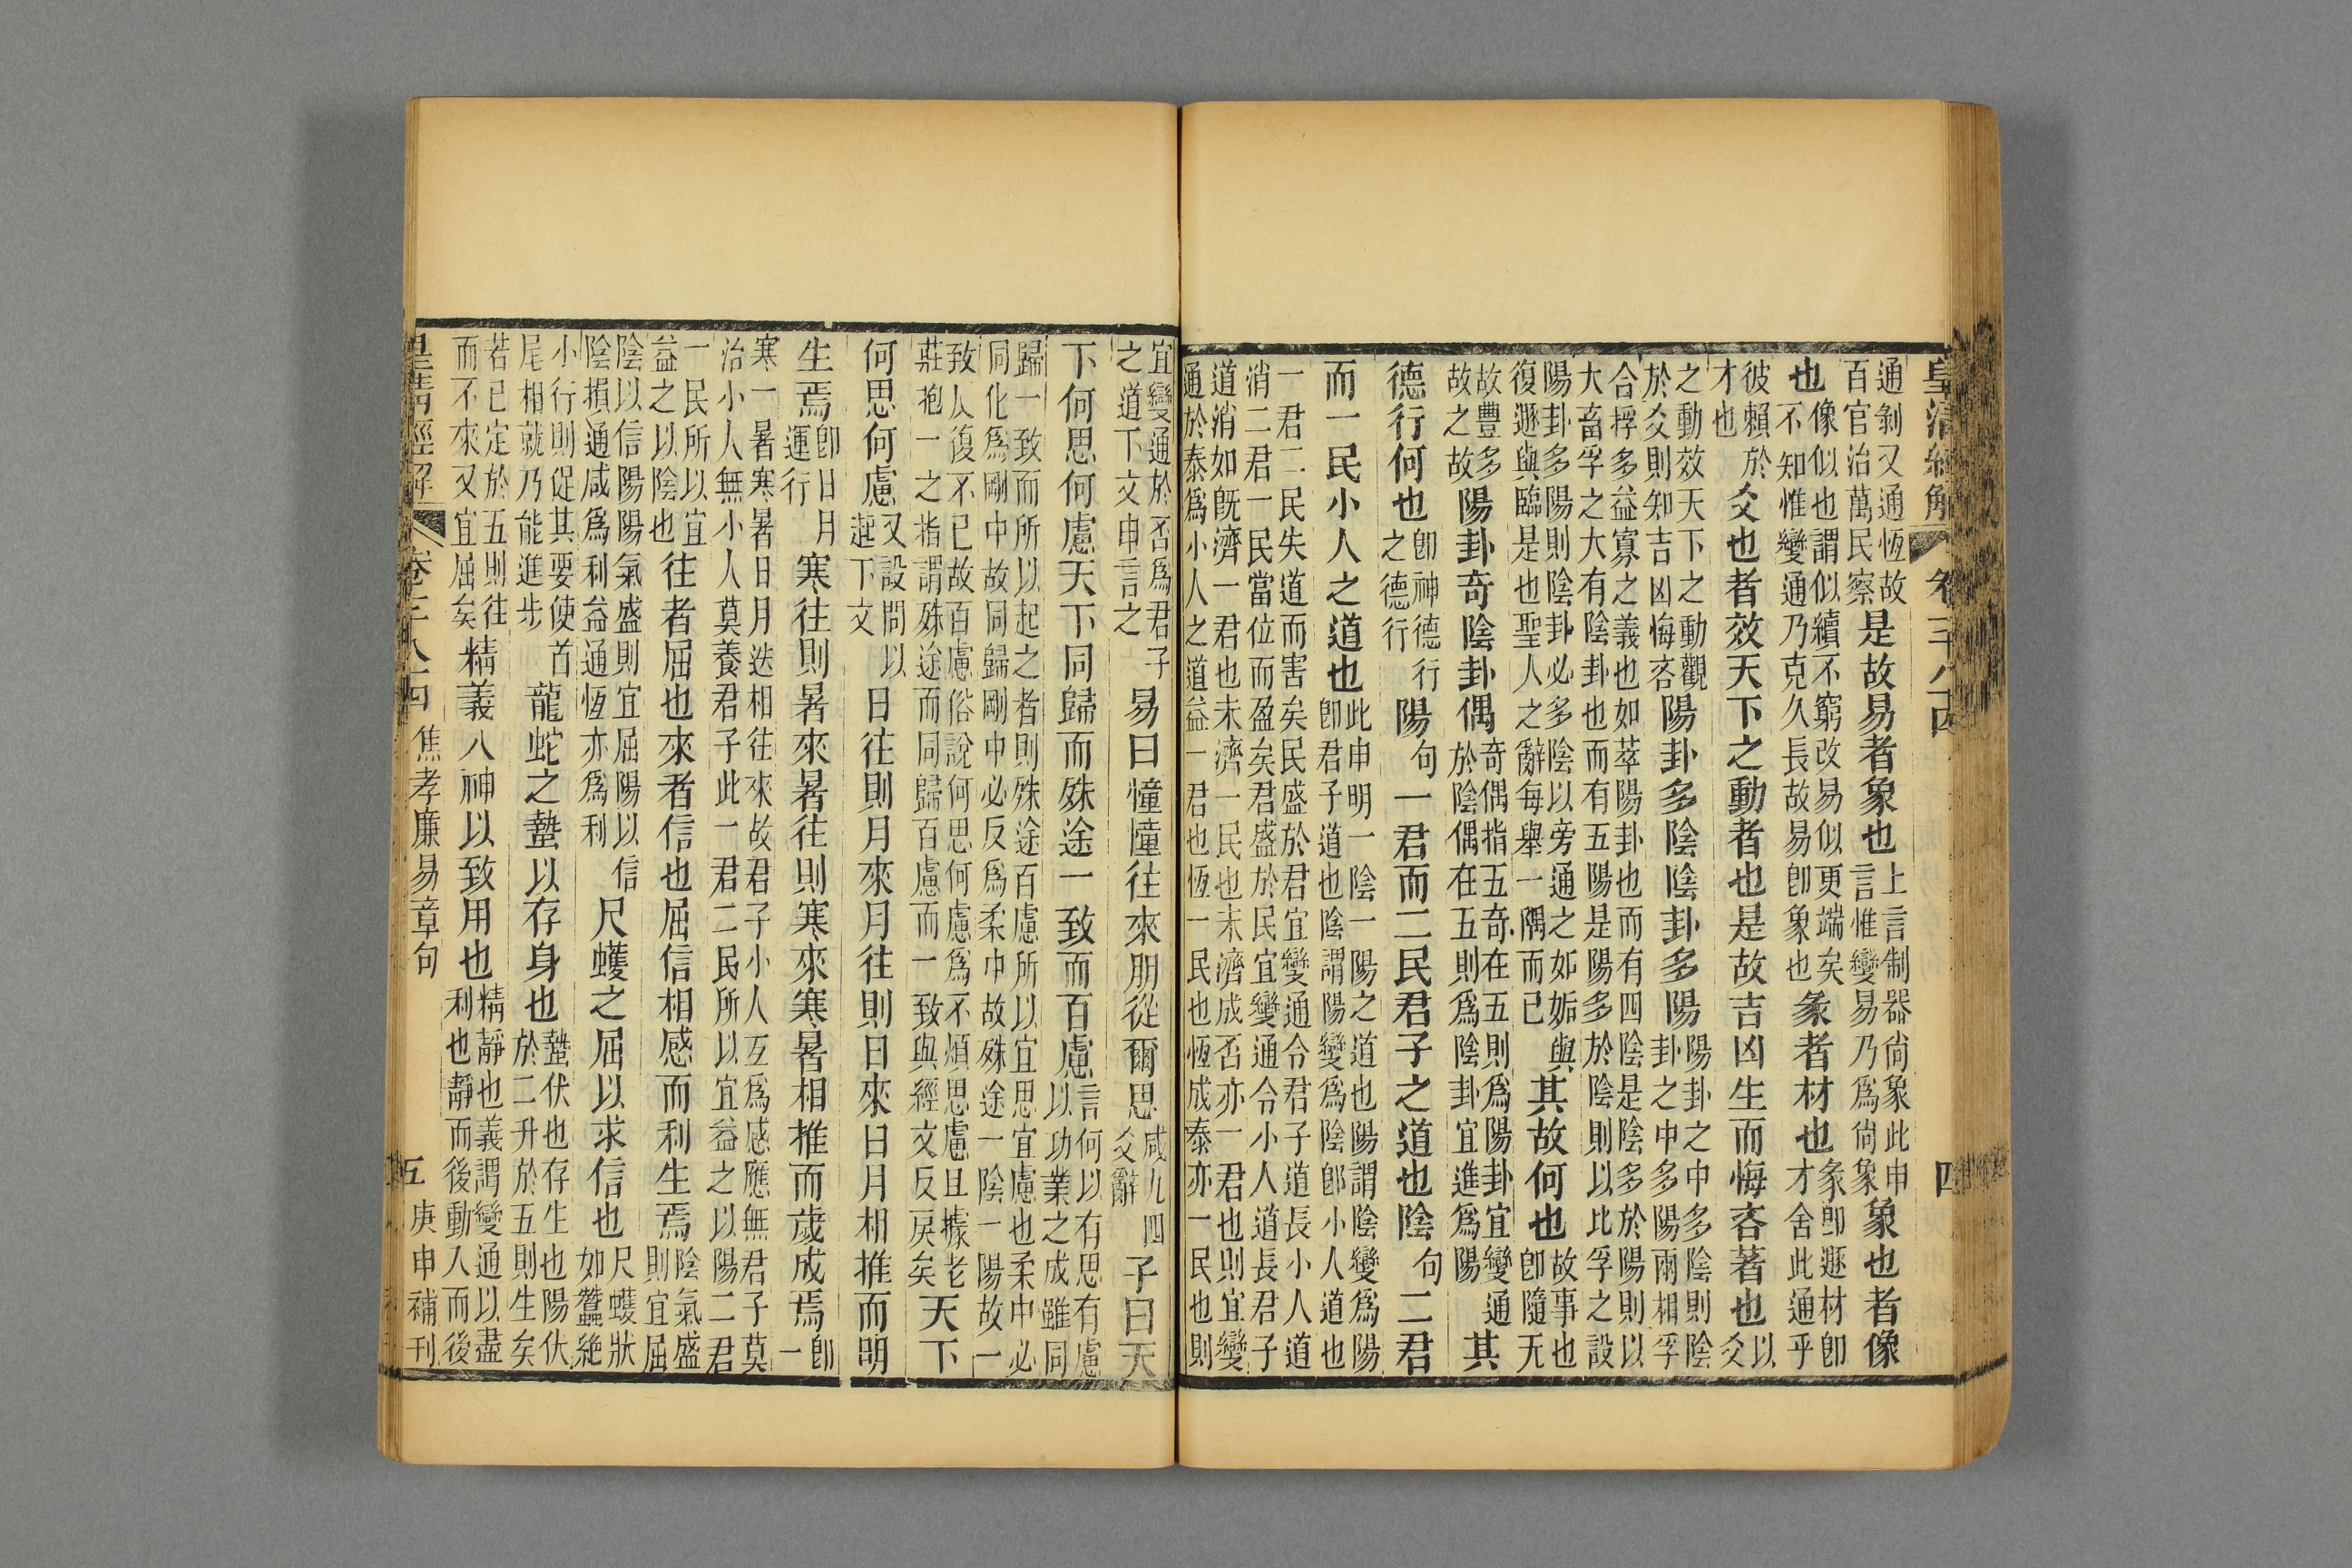 皇清經解 卷千八十四 四
通剝又通恆故百官治萬民察是故易者象也上言制器尙象此申言惟變易乃爲尙象象也者像
也像似也謂似續不窮改易似更端矣不知惟變通乃克久長故易卽象也彖者材也彖卽遯材卽才舍此通乎
彼賴於才也爻也者效天下之動者也是故吉凶生而悔吝著也以爻
之動效天下之動觀於爻則知吉凶悔吝陽卦多陰陰卦多陽陽卦之中多陰則陰卦之中多陽兩相孚
合捊多益寡之義也如萃陽卦也而有四陰是陰多於陽則以大畜孚之大有陰卦也而有五陽是陽多於陰則以比孚之設
陽卦多陽則陰卦必多陰以旁通之如姤與復遯與臨是也聖人之辭每舉一隅而已其故何也故事也卽隨无
故豐多故之故陽卦奇陰卦偶奇偶指五奇在五則爲陽卦宜變通於陰偶在五則爲陰卦宜進爲陽其
德行何也卽神德行之德行陽句一君而二民君子之道也陰句二君
而一民小人之道也此申明一陰一陽之道也陽謂陰變爲陽卽君子道也陰謂陽變爲陰卽小人道也
一君二民失道而害矣民盛於君宜變通令君子道長小人道消二君一民當位而盈矣君盛於民宜變通令小人道長君子
道消如旣濟一君也未濟一民也未濟成否亦一君也則宜變通於泰爲小人之道益一君也恆一民也恆成泰亦一民也則
宜變通於否爲君子之道下文申言之易曰憧憧往來朋從爾思咸九四爻辭子曰天
下何思何慮天下同歸而殊途一致而百慮言何以有思有慮以功業之成雖同
歸一致而所以起之者則殊途百慮所以宜思宜慮也柔中必同化爲剛中故同歸剛中必反爲柔中故殊途一陰一陽故一
致人復不已故百慮俗說何思何慮爲不煩思慮且據老莊抱一之指謂殊途而同歸百慮而一致與經文反戾矣天下
何思何慮又設問以起下文日往則月來月往則日來日月相推而明
生焉卽日月運行寒往則暑來暑往則寒來寒暑相推而歲成焉卽一
寒一暑寒暑日月迭相往來故君子小人互爲感應無君子莫治小人無小人莫養君子此一君二民所以宜益之以陽二君
一民所以宜益之以陰也往者屈也來者信也屈信相感而利生焉陰氣盛則宜屈
陰以信陽陽氣盛則宜屈陽以信陰損通咸爲利益通恆亦爲利尺蠖之屈以求信也尺蠖狀如蠶絶
小行則促其要使首尾相就乃能進步龍蛇之蟄以存身也蟄伏也存生也陽伏於二升於五則生矣
若已定於五則往而不來又宜屈矣精義入神以致用也精靜也義謂變通以盡利也靜而後動入而後
皇清經解 卷千八十四 焦孝廉易章句 五 庚申補刊